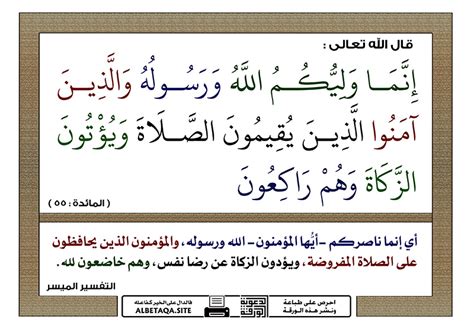 قال الله تعالى :
إِنَّمَا وَلِيُّكُمُ اللَّهُ وَرَسُولُهُ وَالَّذِينَ
آمَنُوا الَّذِينَ يُقِيمُونَ الصَّلَاةَ وَيُؤْتُونَ
الزَّكَاةَ وَهُمْ رَاكِعُونَ
( المائدة : ٥٥ )
أي إنما ناصركم -أيُّها المؤمنون- الله ورسوله، والمؤمنون الذين يحافظون
على الصلاة المفروضة، ويؤدون الزكاة عن رضا نفس، وهم خاضعون لله.
التفسير الميسر
احرص على طباعة
ونشر هذه الورقة
فالدال على الخير كفاعله
ALBETAQA.SITE